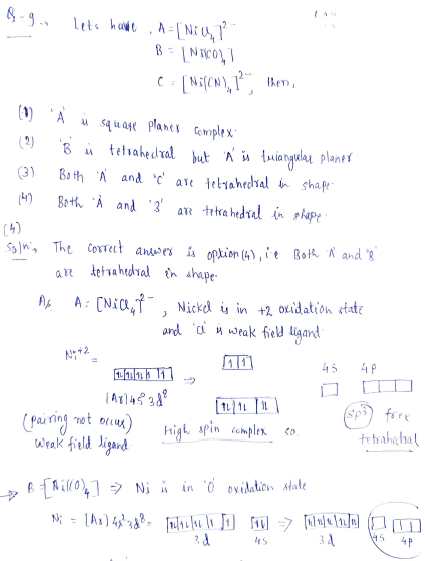 Q-9. Lets have, A = [NiCl4]2-
B = [Ni(CO)4]
C = [Ni(CN)4]2-, then,
(1) 'A' is square planer complex.
(2) 'B' is tetrahedral but 'A' is triangular planer
(3) Both 'A' and 'C' are tetrahedral in shape.
(4) Both 'A' and 'B' are tetrahedral in shape.
(4)
Soln. The correct answer is option (4), i.e Both 'A' and 'B'
are tetrahedral in shape.
As A = [NiCl4]2-, Nickel is in +2 oxidation state
and 'Cl' is weak field ligand
Ni+2 =
1 1
4s 4p
1l 1l 1l 1 1 ⇒
[Ar] 4s0 3d8
1l 1l 1l
(pairing not occurs)
High spin complex so.
sp3 free
Weak field ligand
tetrahedral
→ B = [Ni(CO)4] ⇒ Ni is in 'O' oxidation state
Ni = [Ar) 4s2 3d8 = 1l 1l 1l 1 1 1l ⇒ 1l 1l 1l 1l 1l
3d 4s 3d 4s 4p